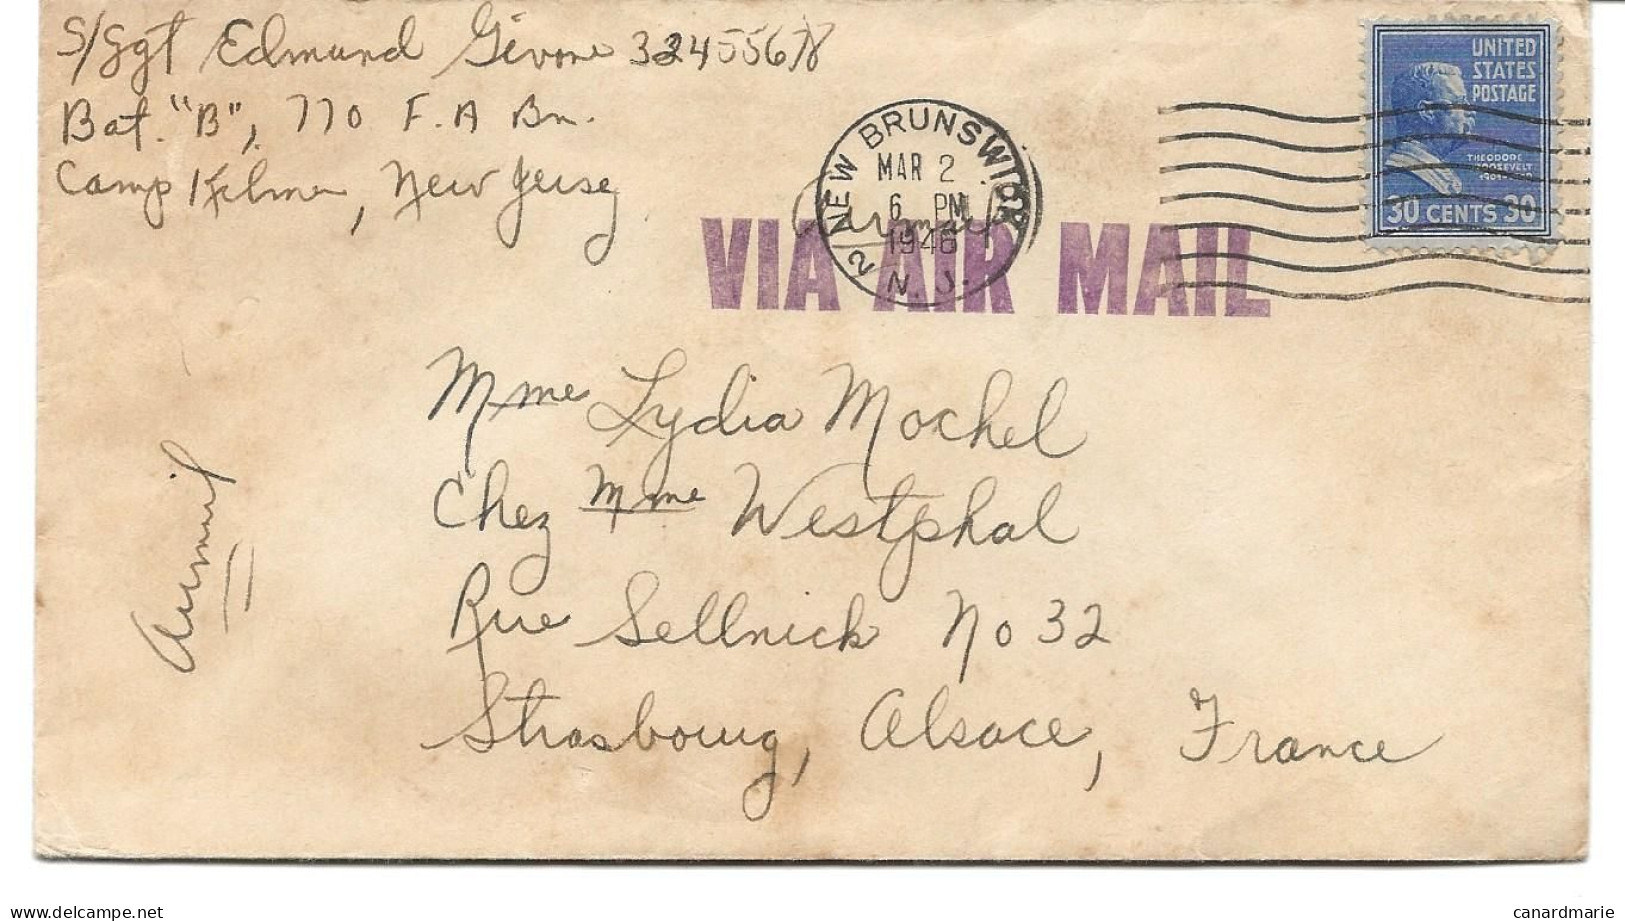 S/Sgt Edmund Givone 32455678
Bat. "B", 770 F.A Bn.
Camp Kilmer, New Jersey
NEW BRUNSWICK
MAR 2
6 PM
1946
2 N. J.
UNITED
STATES
POSTAGE
THEODORE
ROOSEVELT
30 CENTS 30
Airmail
VIA AIR MAIL
Mme Lydia Mochel
Chez Mme Westphal
Rue Sellnick No 32
Strasbourg, Alsace, France
Airmail
delcampe.net
canardmarie